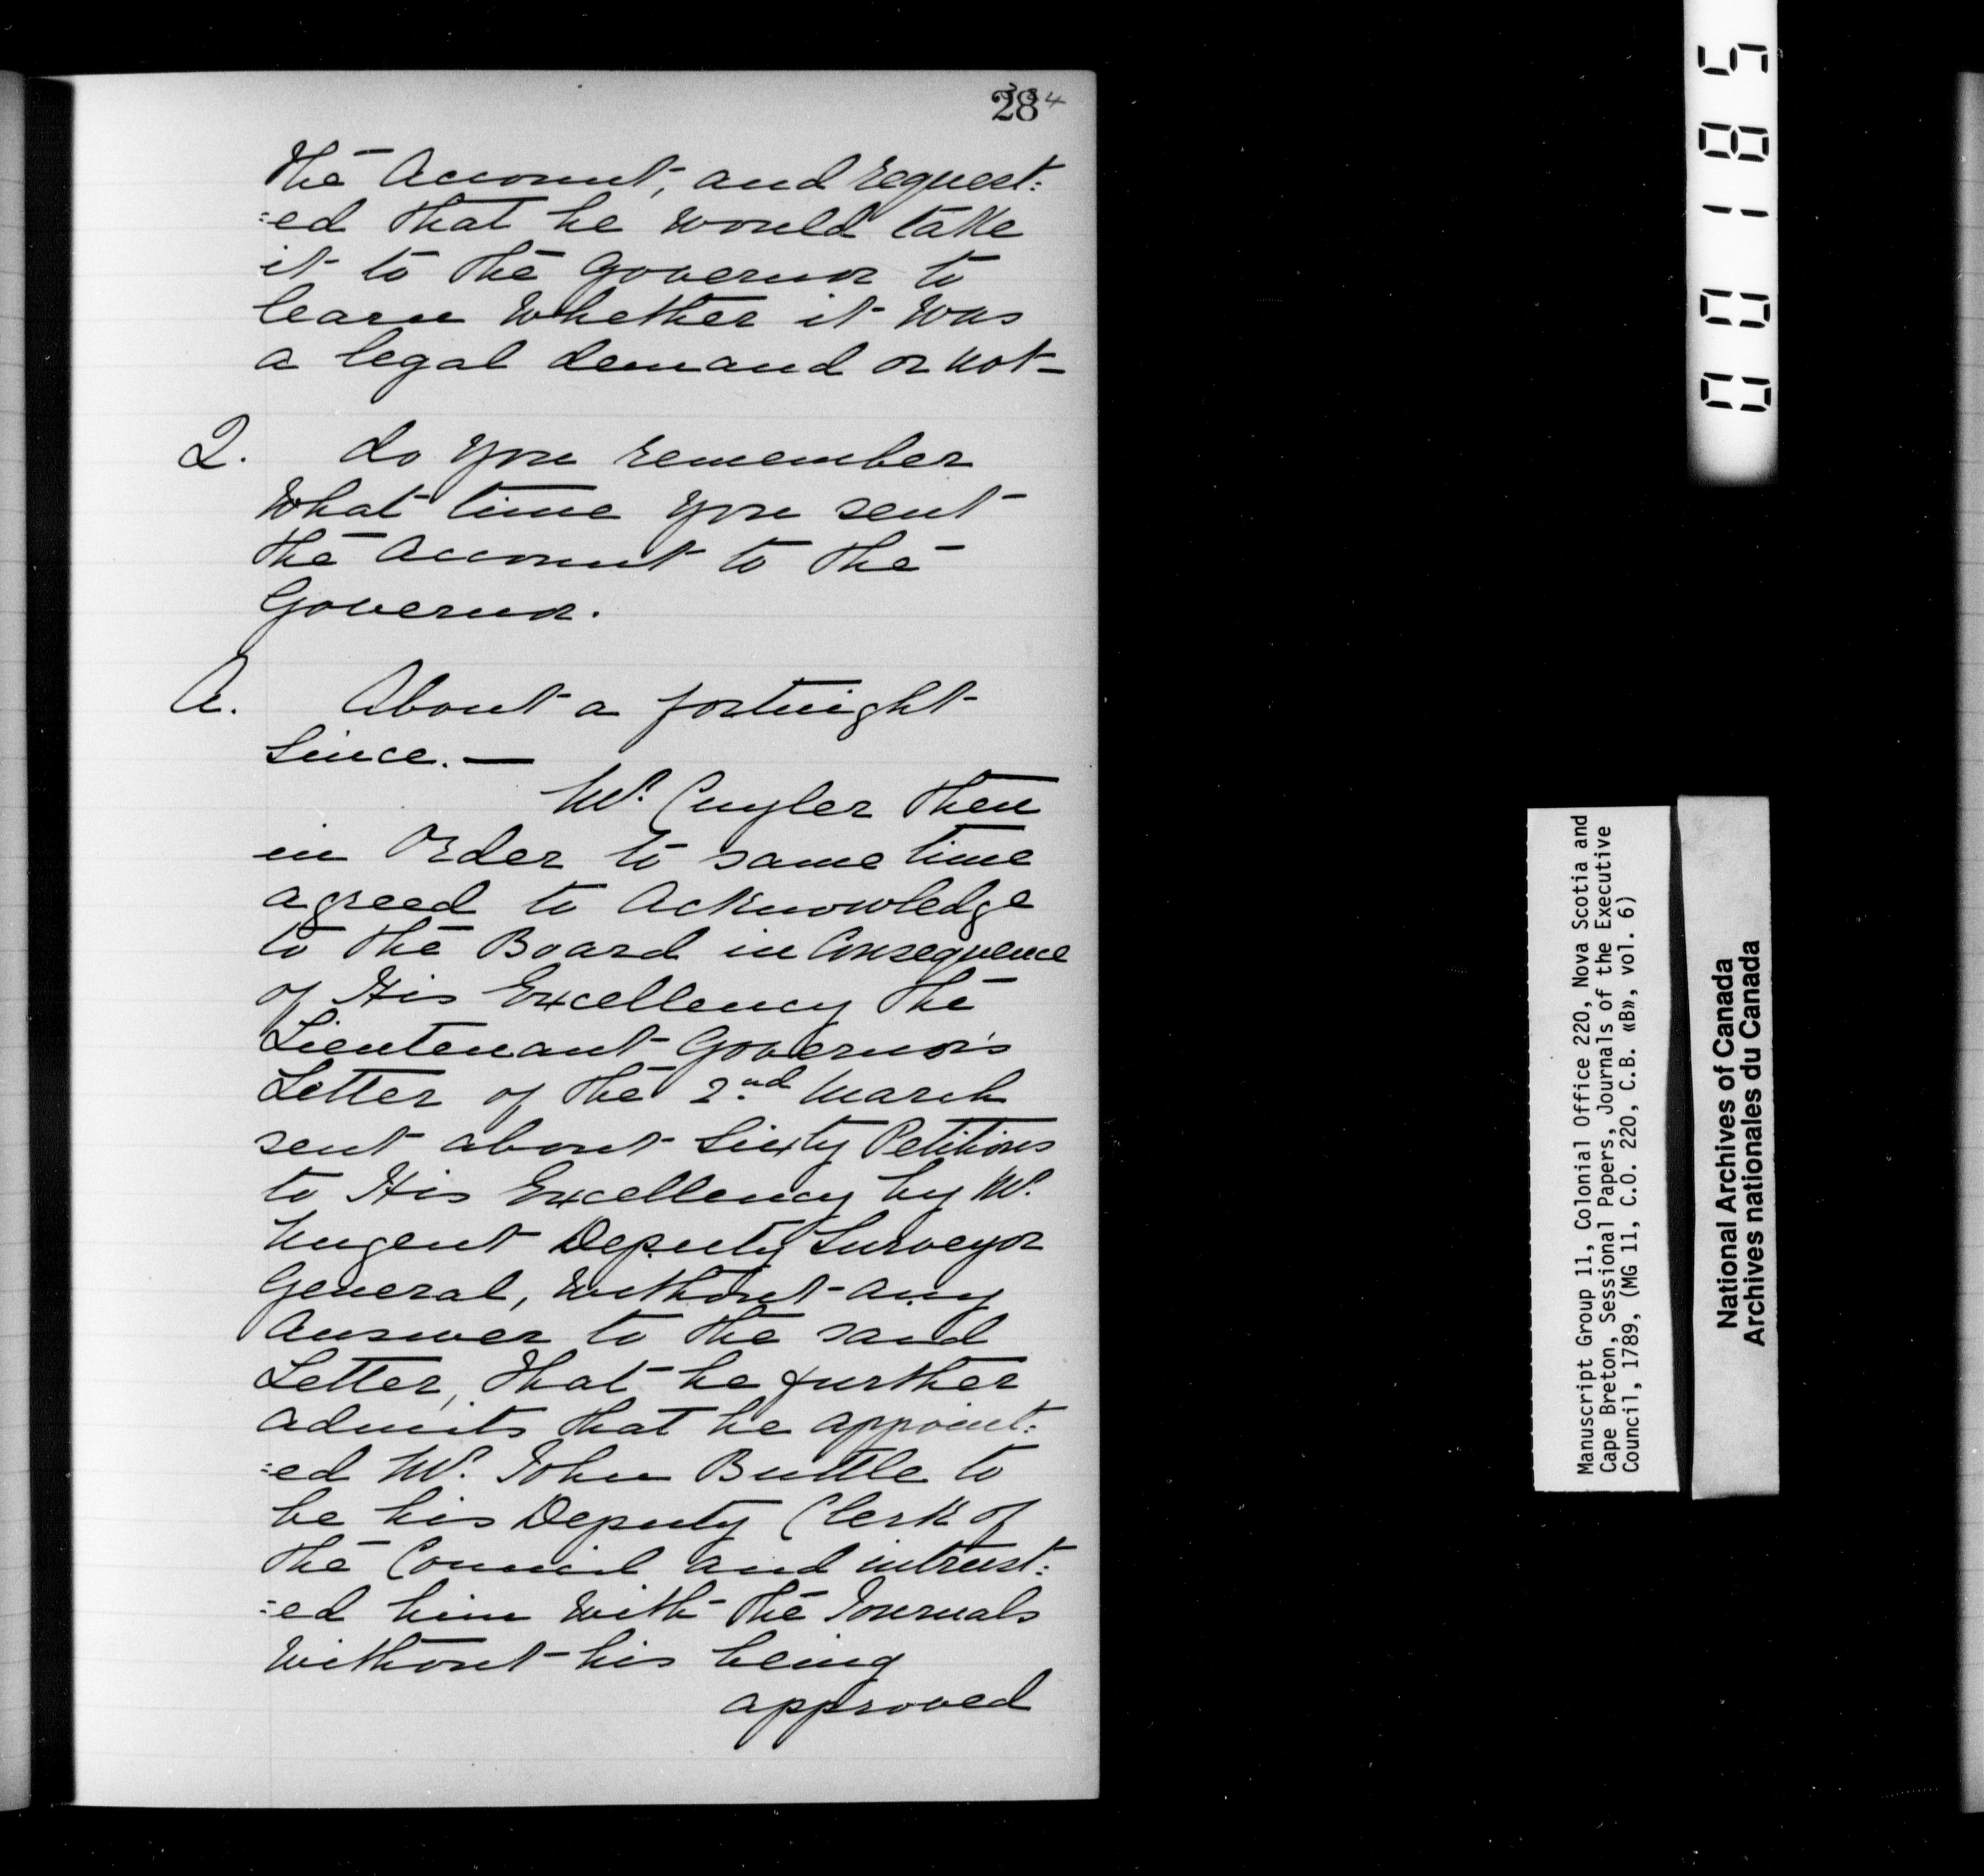 28
the Account, and request:
:ed that he would take
it to the Governor to
learn whether it was
a legal demand or not_
Q. do you remember
what time you sent
the Account to the
Governor.
A. About a fortnight
since. —
Mr. Cuyler then
in Order to same time
agreed to Acknowledge
to the Board in Consequence
of His Excellency the
Lieutenant Governor's
Letter of the 2nd March
sent about Sixty Petitions
to His Excellency by Mr.
Nugent Deputy Surveyor
General, without any
Answer to the said
Letter, that he further
admits that he appoint:
:ed Mr. John Buttle to
be his Deputy Clerk of
the Council and intrust:
:ed him with the Journals
without his being
approved
00185
Manuscript Group 11, Colonial Office 220, Nova Scotia and
Cape Breton, Sessional Papers, Journals of the Executive
Council, 1789, (MG 11, C.O. 220, C.B. «B», vol. 6)
National Archives of Canada
Archives nationales du Canada